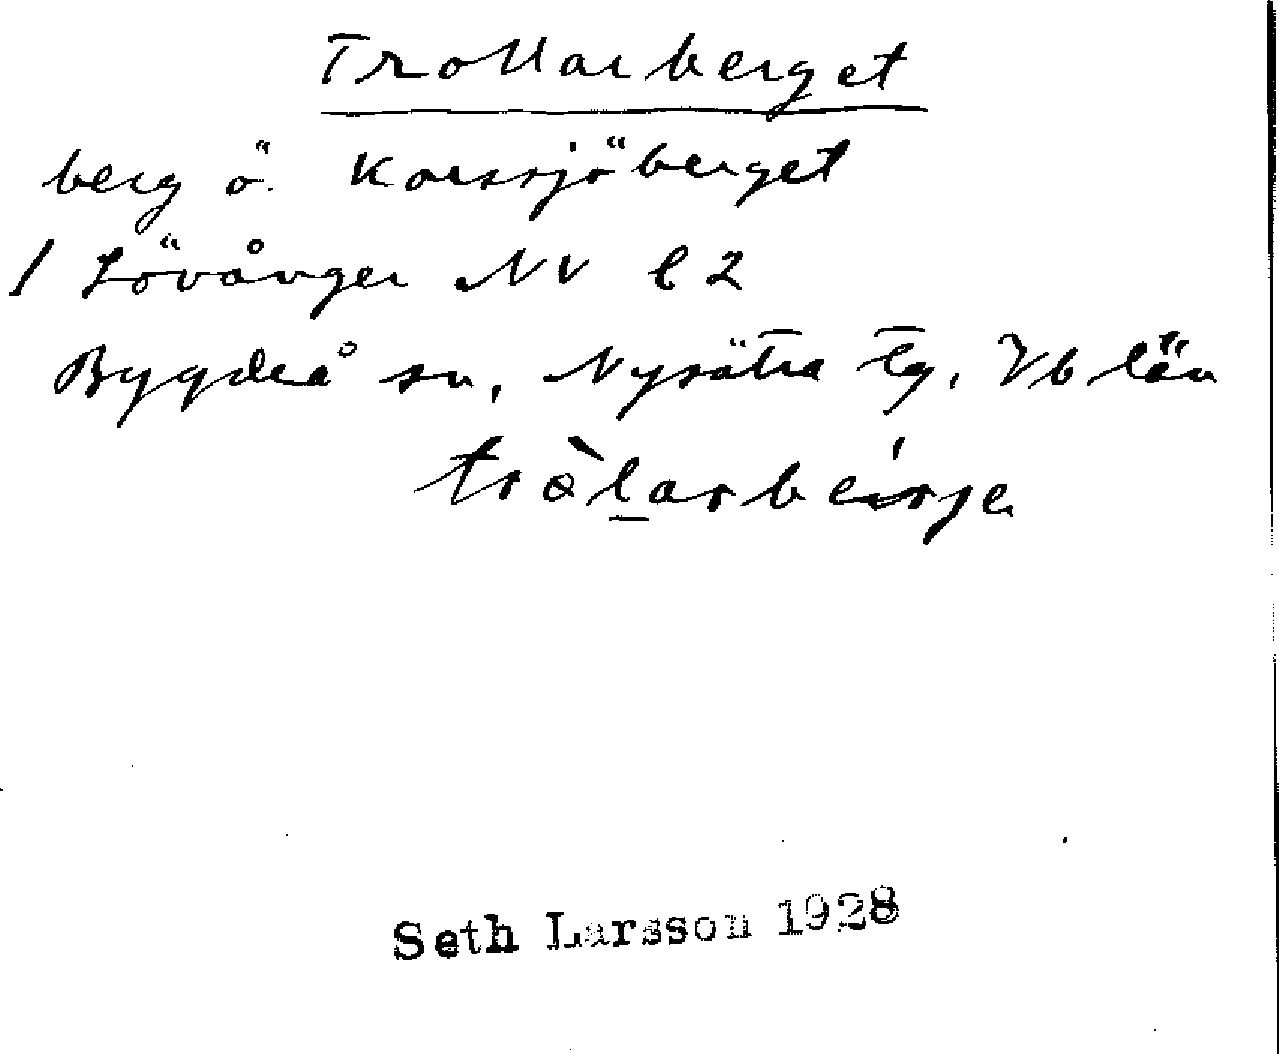 Trollarberget
berg ö. Korssjöberget
/ Lövånger NV C 2
Bygdeå sn, Nysätra tg, Vb län
Seth Larsson 1928